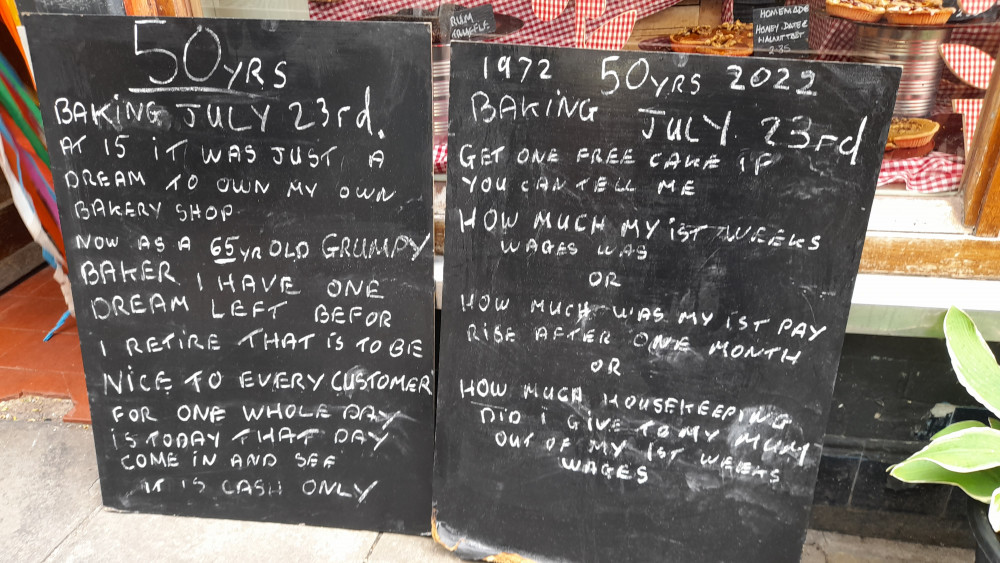 50YRS
BAKING JULY 23rd.
AT 15 IT WAS JUST A
DREAM TO OWN MY OWN
BAKERY SHOP
NOW AS A 65 yR OLD GRUMPY
BAKER I HAVE ONE
DREAM LEFT BEFOR
I RETIRE THAT IS TO BE
NICE TO EVERY CUSTOMER
FOR ONE WHOLE DAY
IS TODAY THAT DAY
COME IN AND SEE
IT IS CASH ONLY
1972 50YRS 2022
BAKING JULY 23rd
GET ONE FREE CAKE IF
YOU CAN TELL ME
HOW MUCH MY 1ST WEEKS
WAGES WAS
OR
HOW MUCH WAS MY 1ST PAY
RISE AFTER ONE MONTH
OR
HOW MUCH HOUSEKEEPING
DID I GIVE TO MY MUM
OUT OF MY 1ST WEEKS
WAGES
RUM
TRUFFLE
HOMEMADE
HONEY, DATE &
WALNUT TART
2-35